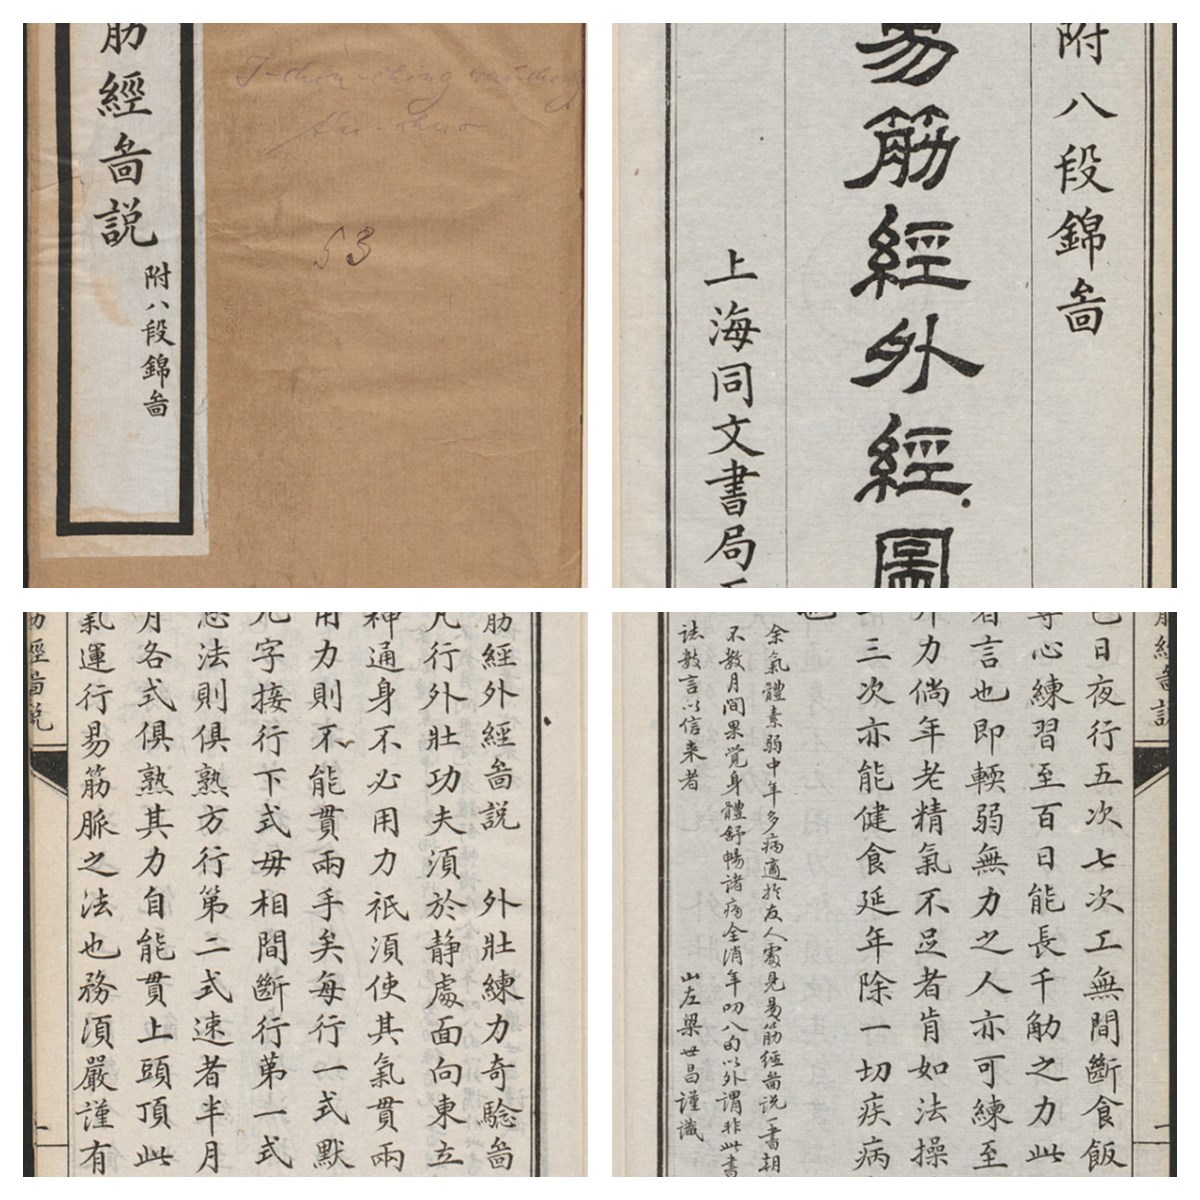 筋經啚説
附八段錦啚
I-chin-ching wai-ching
53
附八段錦啚
易筋經外經圖
上海同文書局
筋經外經啚説 外壯練力奇驗啚
凡行外壯功夫須於静處面向東立
神通身不必用力祇須使其氣貫兩
用力則不能貫兩手矣每行一式默
九字接行下式毋相間斷行第一式
忘法則俱熟方行第二式速者半月
月各式俱熟其力自能貫上頭頂此
氣運行易筋脈之法也務須嚴謹有
筋經啚説
筋經啚説
日夜行五次七次工無間斷食飯
專心練習至百日能長千觔之力此
者言也即輭弱無力之人亦可練至
斤力倘年老精氣不足者肯如法操
三次亦能健食延年除一切疾病
也
余氣體素弱中年多病適於友人處見易筋經啚説一書朝
不数月間果覺身體舒暢諸病全消年叨八旬以外謂非此書
誌数言以信来者 山左梁世昌謹識